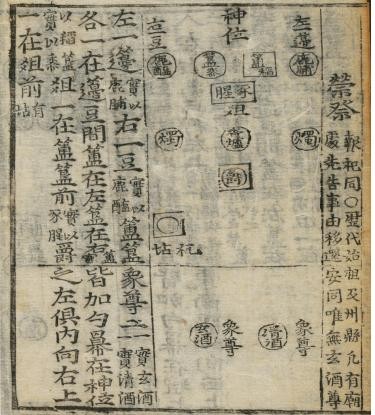 禜祭報祀同○歷代始祖及州縣凡有廟
處先告事由移還安同唯無玄酒尊
神位
左籩
鹿脯
簠稻
簋黍
右豆
鹿醢
豕腥
俎
燭
香爐
燭
爵
祝坫
象尊
清酒
象尊
玄酒
左一籩實以鹿脯右一豆實以鹿醢簠簋
各一在籩豆間簠在左簋在右簠
實以稻簋實以黍俎一在簠簋前實以豕腥爵
一在俎前有坫
象尊二一實玄酒一實清酒
皆加勺冪在神位
之左俱內向右上